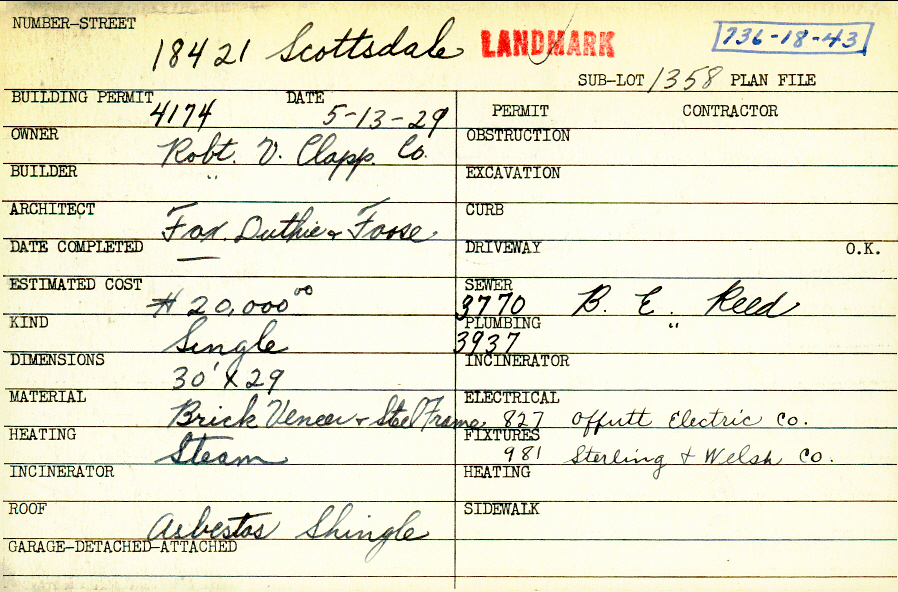 NUMBER-STREET
18421 Scottsdale LANDMARK 736-18-43
SUB-LOT 1358 PLAN FILE
BUILDING PERMIT 4174 DATE 5-13-29
OWNER Robt. V. Clapp. Co.
BUILDER "
ARCHITECT Fox. Duthie & Foose
DATE COMPLETED —
ESTIMATED COST $20,000.00
KIND Single
DIMENSIONS 30' X 29
MATERIAL Brick Veneer & Steel Frame
HEATING Steam
INCINERATOR
ROOF Asbestos Shingle
GARAGE-DETACHED-ATTACHED
PERMIT CONTRACTOR
OBSTRUCTION
EXCAVATION
CURB
DRIVEWAY O.K.
SEWER 3770 B. E. Reed
PLUMBING 3937 "
INCINERATOR
ELECTRICAL 827 Offutt Electric Co.
FIXTURES 981 Sterling & Welsh Co.
HEATING
SIDEWALK